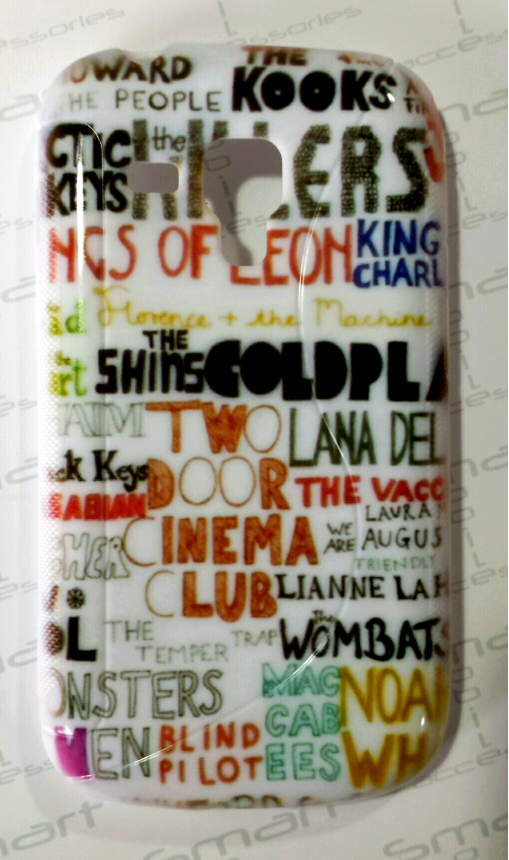 OWARD THE
THE PEOPLE KOOKS
CTIC the KILLERS
KEYS
NGS OF LEON KING
CHARL
Florence + the Machine
THE
SHINS COLDPLA
rt
AIM TWO LANA DEL
ck Keys DOOR THE VACC
ABIAN LAURA
CINEMA WE AUGUS
HER ARE FRIENDLY
CLUB LIANNE LA H
THE TRAP The WOMBATS
TEMPER
ONSTERS MAC NOAH
CAB
EN BLIND EES WH
PILOT
smart
accessories